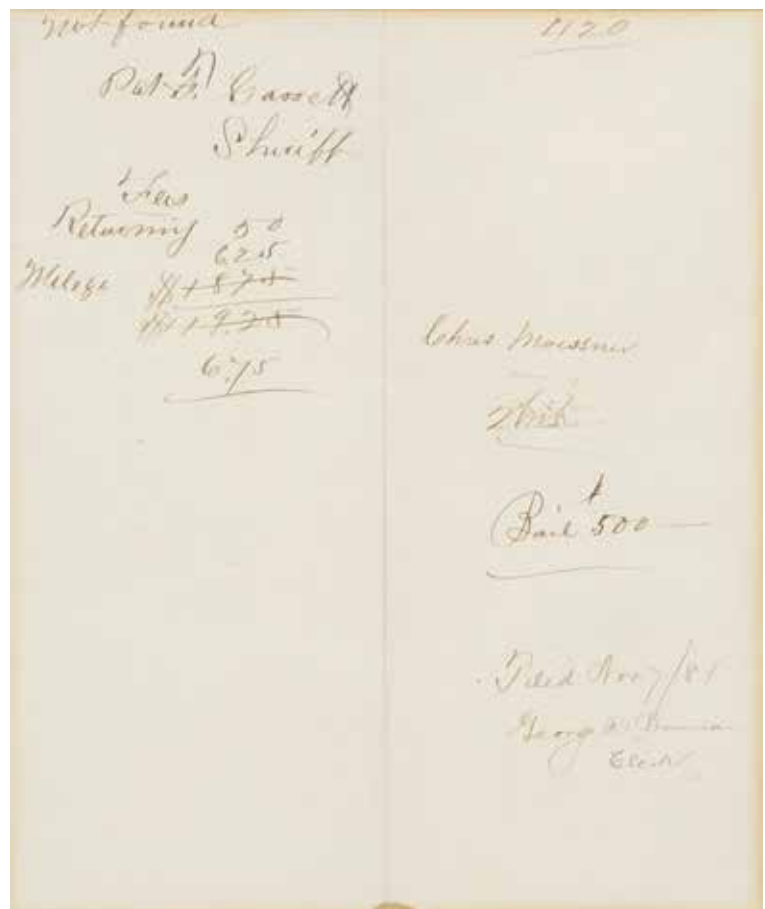 Not found
Pat F. Garrett
Sheriff
Fees
Returning 50
6.25
Mileage
6.75
1120
Chris Moessner
Bail $500
Filed Nov 7/81
George
Clerk